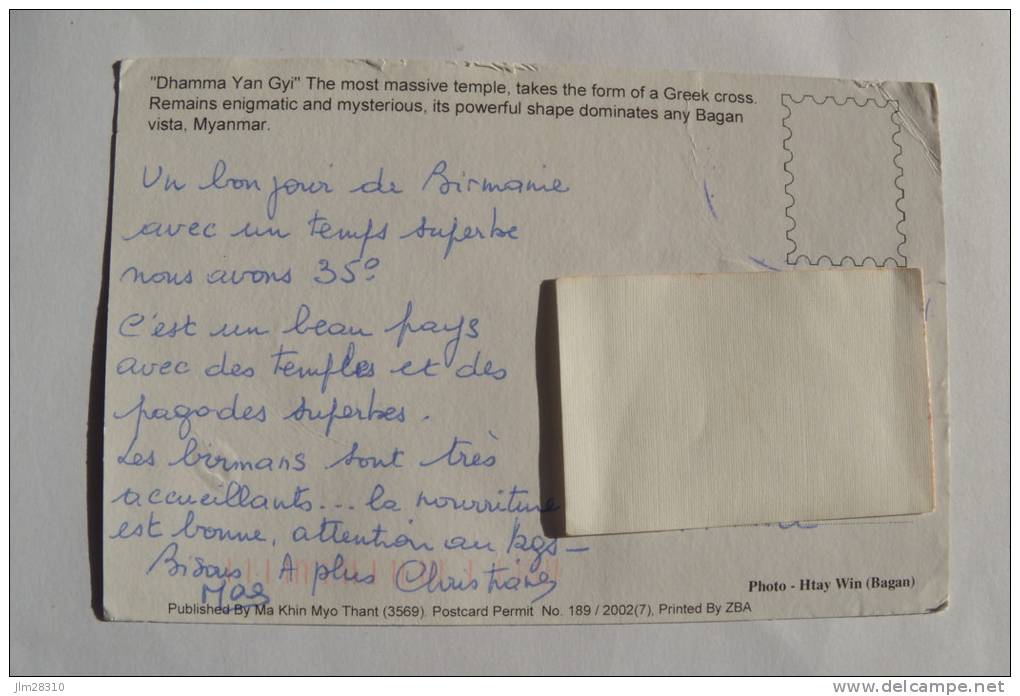 "Dhamma Yan Gyi" The most massive temple, takes the form of a Greek cross.
Remains enigmatic and mysterious, its powerful shape dominates any Bagan
vista, Myanmar.
Un bonjour de Birmanie
avec un temps superbe
nous avons 35°
C'est un beau pays
avec des temples et des
pagodes superbes.
Les birmans sont très
accueillants... la nourriture
est bonne, attention au kgs -
Bisous A plus Christiane
Photo - Htay Win (Bagan)
Published By Ma Khin Myo Thant (3569). Postcard Permit No. 189 / 2002(7), Printed By ZBA
jlm28310
www.delcampe.net